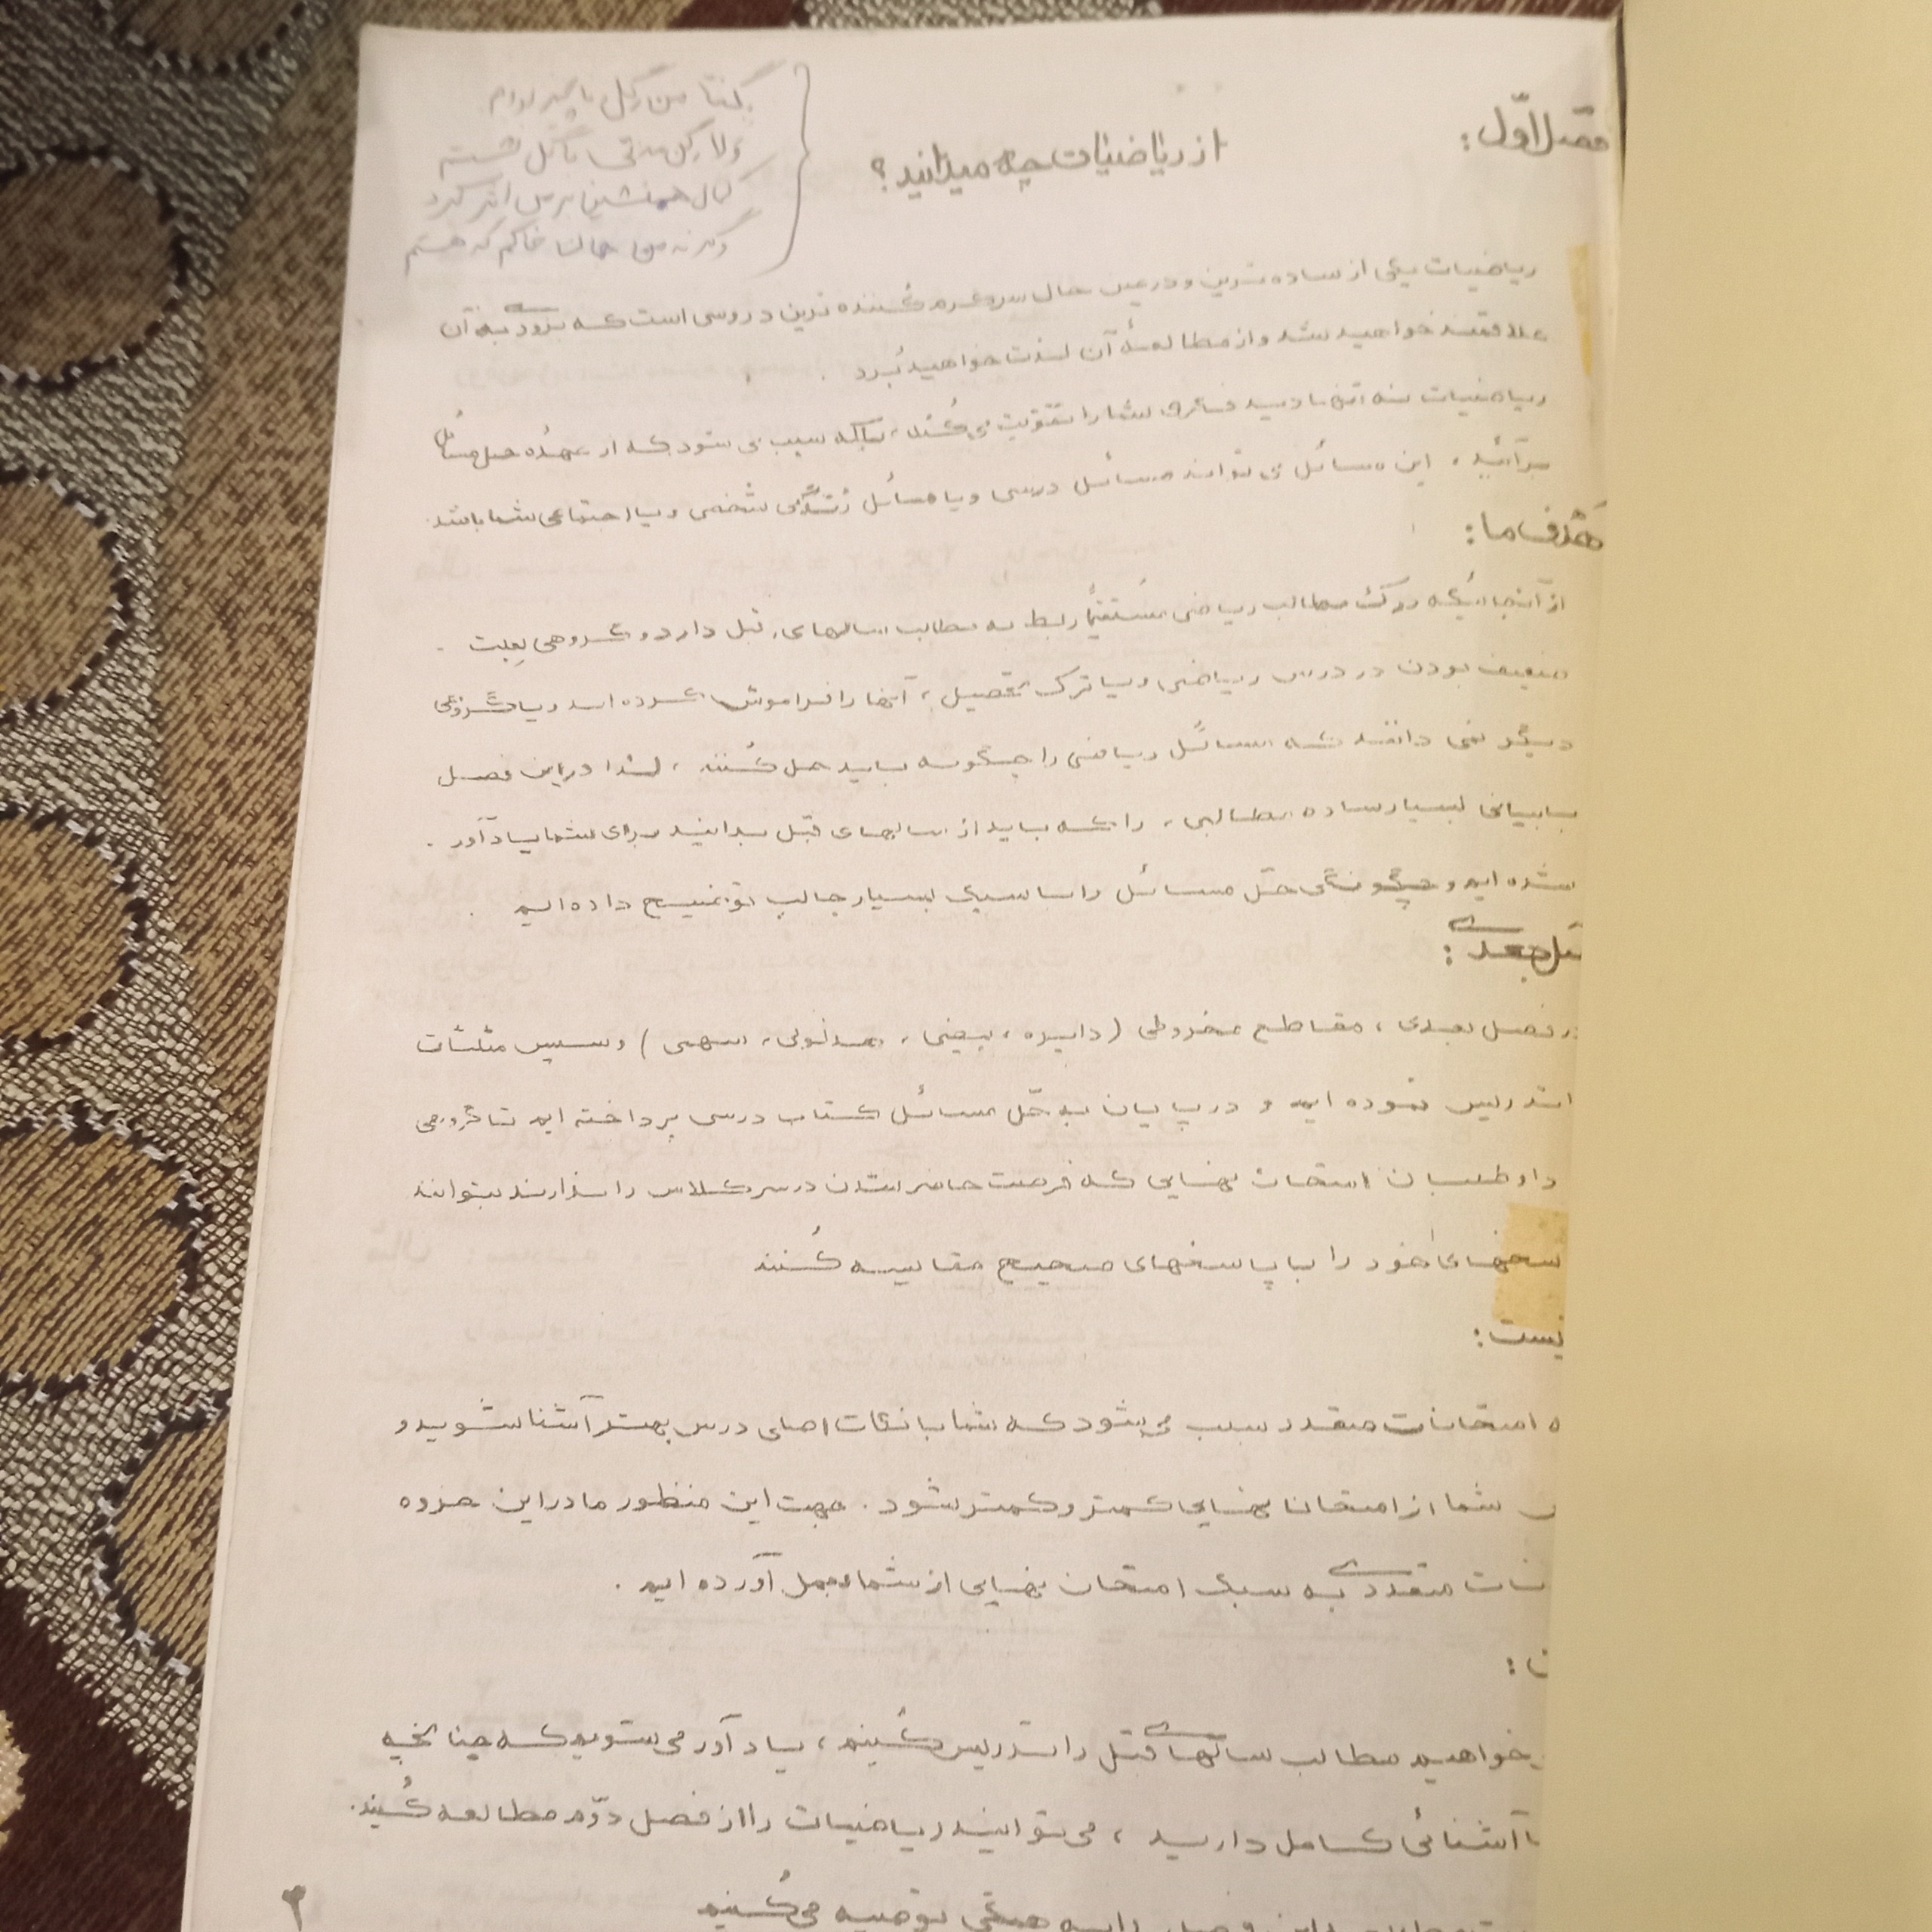 فصل اوّل:
از ریاضیات چه میدانید؟
بگفتا من گل ناچیز بودم
ولا گل مدتی با گل نشستم
کمال همنشین بر من اثر کرد
وگر نه من همان خاکم که هستم
ریاضیات یکی از ساده ترین و در عین حال سرگرم کننده ترین دروسی است که بزودی به آن
علاقمند خواهید شد و از مطالعهٔ آن لذت خواهید بُرد .
ریاضیات نه تنها دید فکری شما را تقویت می کُند ، بلکه سبب می شود که از عهدُه حل مسائل
برآئید ، این مسائل می تواند مسائل درسی و یا مسائل زندگی شخصی و یا اجتماعی شما باشد.
هَدف ما :
از آنجائیکه درک مطالب ریاضی مُستقیماً ربط به مطالب سالهای قبل دارد و گروهی بِعلت
ضعیف بودن در درس ریاضی و یا ترک تحصیل ، آنها را فراموش کرده اند و یا گروهی
دیگر نمی دانند که مسائل ریاضی را چگونه باید حل کُنند ، لذا در این فصل
با بیانی بسیار ساده مطالبی ، را که باید از سالهای قبل بدانید برای شما یاد آور
شده ایم و چگونگی حلّ مسائل را با سبکی بسیار جالب توضیح داده ایم .
بعدی :
در فصل بعدی ، مقاطع مخروطی ( دایره ، بیضی ، هذلولی ، سهمی ) و سپس مثلثات
را تدریس نموده ایم و در پایان به حّل مسائل کتاب درسی پرداخته ایم تا گروهی
داوطلبان امتحان نهایی که فرصت حاضر شدن در سر کلاس را ندارند بتوانند
سخهای خود را با پاسخهای صحیح مقایسه کُنند
نیست :
ه امتحانات متعدد سبب می شود که شما با نکات اصلی درس بهتر آشنا شوید و
س شما از امتحانا نهایی کمتر و کمتر شود . جهت این منظور ما در این جزوه
نات متعددی به سبک امتحان نهایی از شما بعمل آورده ایم .
ن :
خواهیم مطالب سالهای قبل را تدریس کُنیم ، یاد آور می شویم که چنانچه
ا آشنائی کامل دارید ، می توانید ریاضیات را از فصل دوّم مطالعه کُنید.
توصیه می کُنیم
۲